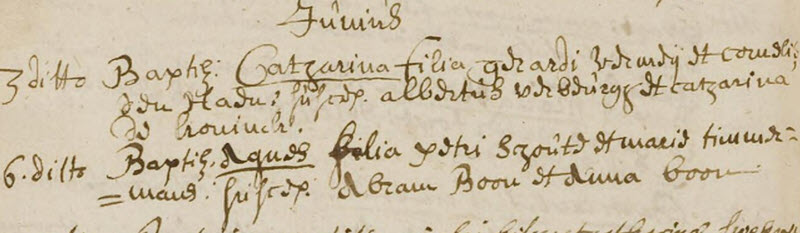 Junius
3 ditto Baptiz: Catzarina filia gerardi vermeij et corneli:
den Haen: suscep. albertus verbeurgg et catzarina
de koninck.
6. ditto Baptiz. Agnes filia petri Szoute et marie timmer=
=mans: suscep. Abram Boon et Anna boon